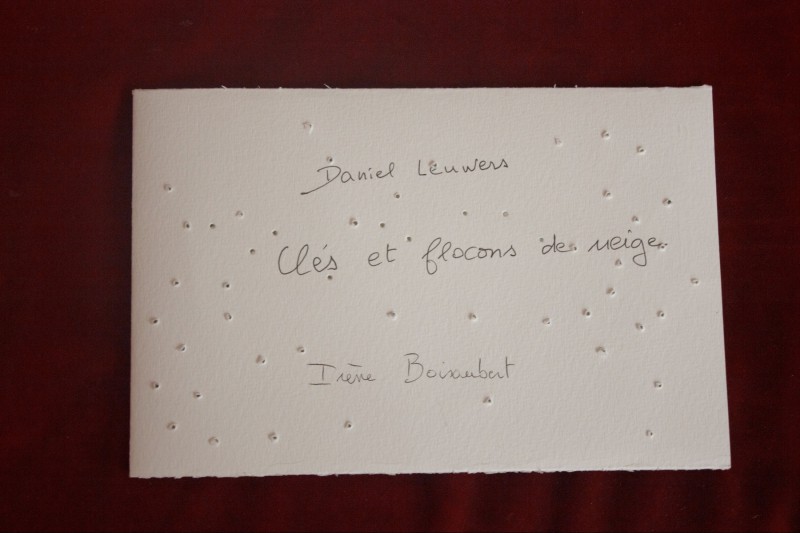 Daniel Leuwers
Clés et flocons de neige
Irène Boisaubert